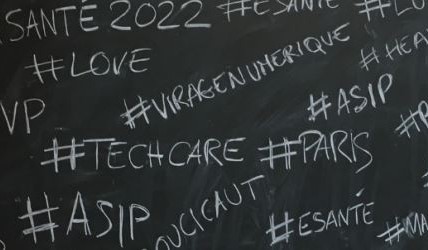 SANTÉ 2022 #ESANTÉ
#LOVE
#VIRAGENUMERIQUE
VP #ASIP
#TECHCARE #PARIS
#ASIP
#ESANTÉ